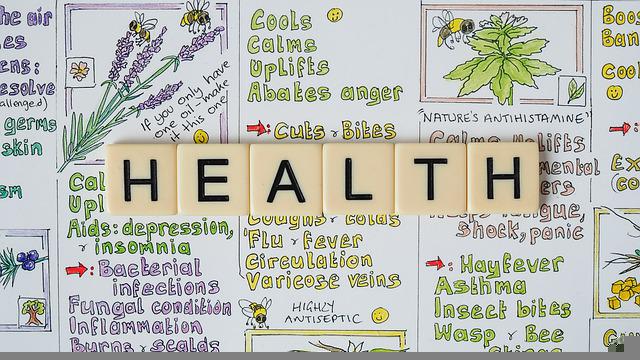 HEALTH
the air
ens:
esolve
allenged)
germs
skin
sm
If you only have
one oil - make
it this one!
Cal
Upl
Aids: depression,
insomnia
: Bacterial
infections
Fungal condition
Inflammation
Burns scalds
Cools
Calms
Uplifts
Abates anger
: Cuts Bites
Coughs colds
'Flu fever
Circulation
Varicose veins
HIGHLY
ANTISEPTIC
"NATURE'S ANTIHISTAMINE"
Calms Uplifts
mental
ers
Helps fatigue,
Shock, panic
: Hayfever
Asthma
Insect bites
Wasp Bee
Boos
Ban
Coo
Ex
co